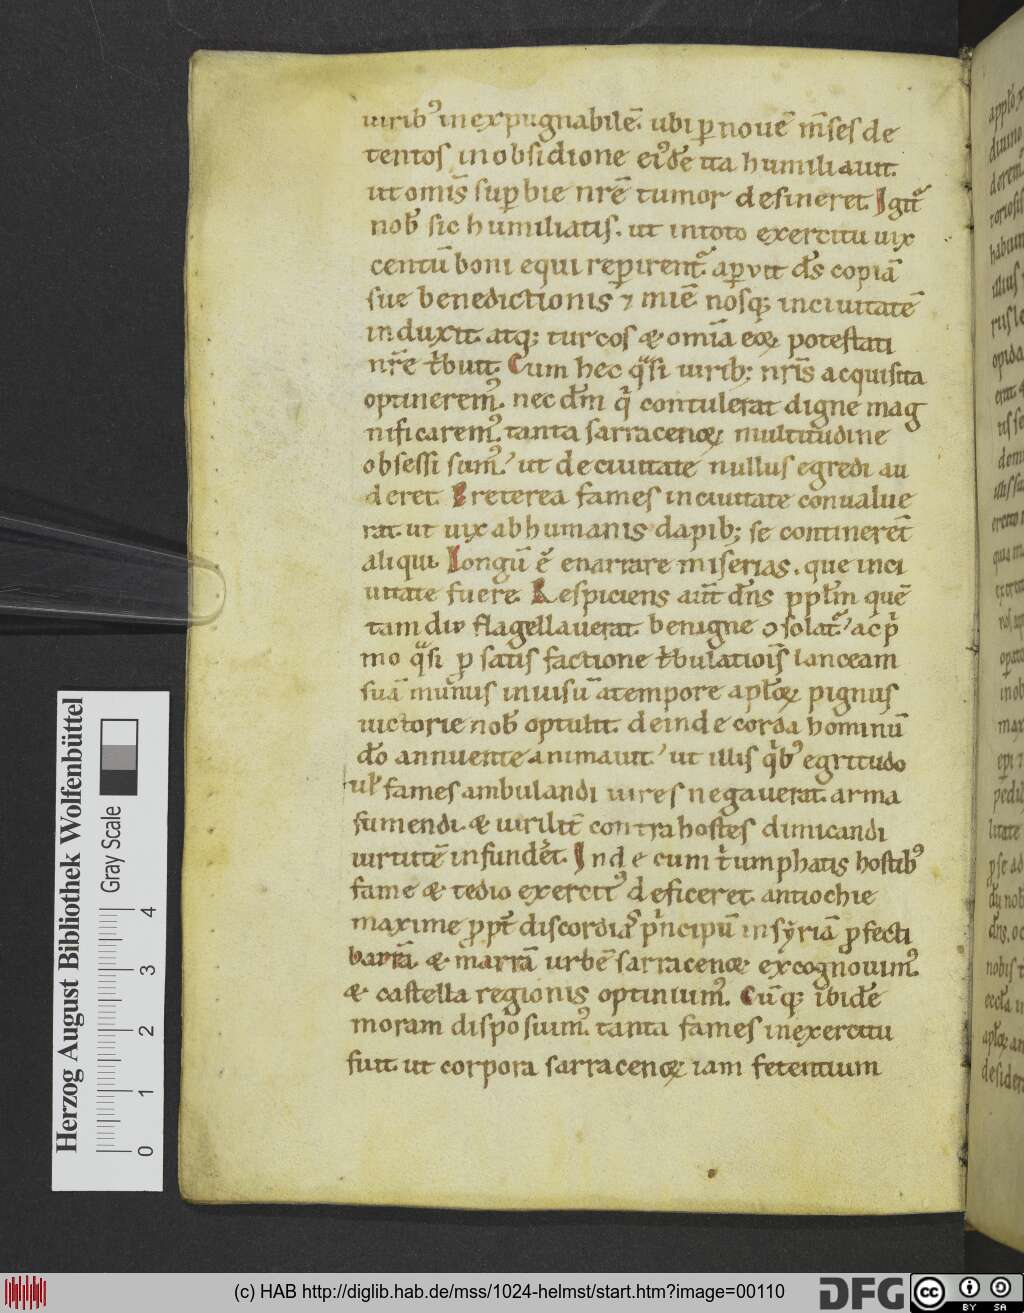 uirib᷒ inexpugnabilē. ubi ꝑ nouē m̄ses de
tentos in obsidione ei᷒dē ita humiliauit.
ut om̄is suꝑbie nr̄ē tumor desineret. Igit᷑
nob̄ sic humiliatis. ut in toto exercitu uix
centū boni equi reꝑirent᷑. aꝑuit d̄s copiā
sue benedictionis ⁊ mīē. nosq; in ciuitatē
induxit. atq; turcos & om̄ia eoꝝ potestati
nr̄ē t͛buit. Cum hec q̄si uirib; nr̄is acquisita
optinerem᷒. nec d̄m q̇ contulerat digne mag
nificarem᷒. tanta sarracenoꝝ multitudine
obsessi sum᷒. ut de ciuitate nullus egredi au
deret. Preterea fames in ciuitate conualue
rat. ut uix ab humanis dapib; se continerēt
aliqui. Longū ē enarrare miserias. que in ci
uitate fuere. Respiciens aut̄ d̄ns ppl̄m quē
tam diu flagellauerat. benigne ↄsolat᷑. ac ṗ
mo q̄si ꝓ satisfactione t͛bulatiōis lanceam
suā munus inuisū a tempore apl̄oꝝ pignus
uictorie nob̄ optulit. deinde corda hominū
d̄o annuente animauit. ut illis q̇b᷒ egritudo
ul̄ fames ambulandi uires negauerat. arma
sumendi. & uirilit̄ contra hostes dimicandi
uirtutē infunderet. Inde cum t͛umphatis hostib᷒
fame & tedio exercit᷒ deficeret. antiochie
maxime ꝓpt̄ discordiā pͥncipū in sẏriā ꝓfecti
barrā & marrā urbē sarracenoꝝ excognouim᷒.
& castella regionis optinuim᷒. Cūq; ibidē
moram disposuim᷒. tanta fames in exercitu
fuit. ut corpora sarracenoꝝ iam fetentium
Herzog August Bibliothek Wolfenbüttel
Gray Scale
0 1 2 3 4
(c) HAB http://diglib.hab.de/mss/1024-helmst/start.htm?image=00110
DFG cc BY SA